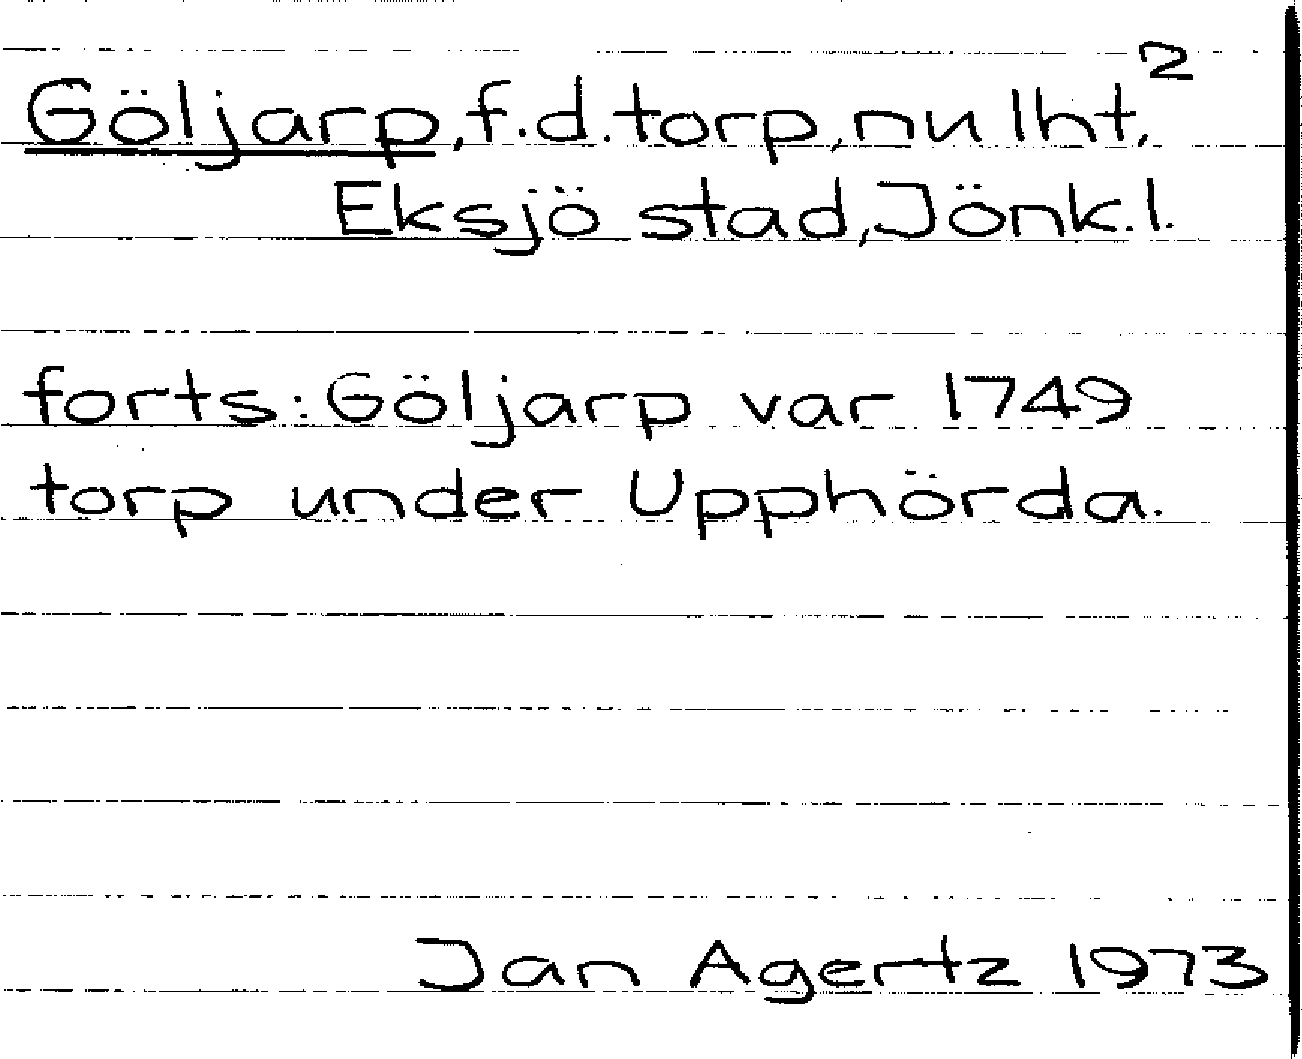 2
Göljarp, f.d. torp, nu lht,
Eksjö stad, Jönk.l.
forts: Göljarp var 1749
torp under Upphörda.
Jan Agertz 1973